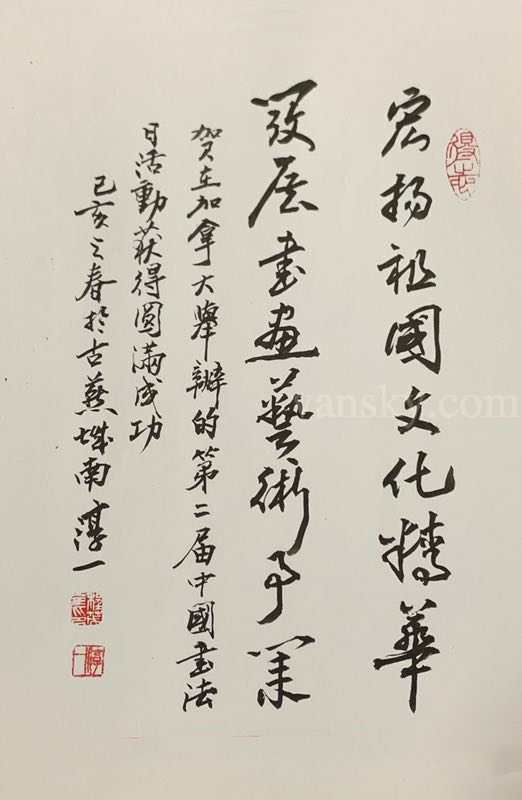 宏揚祖國文化精華
發展書畫藝術事業
賀在加拿大舉辦的第二届中國書法
日活動获得圆滿成功
己亥之春於古燕城南淳一
vansky.com